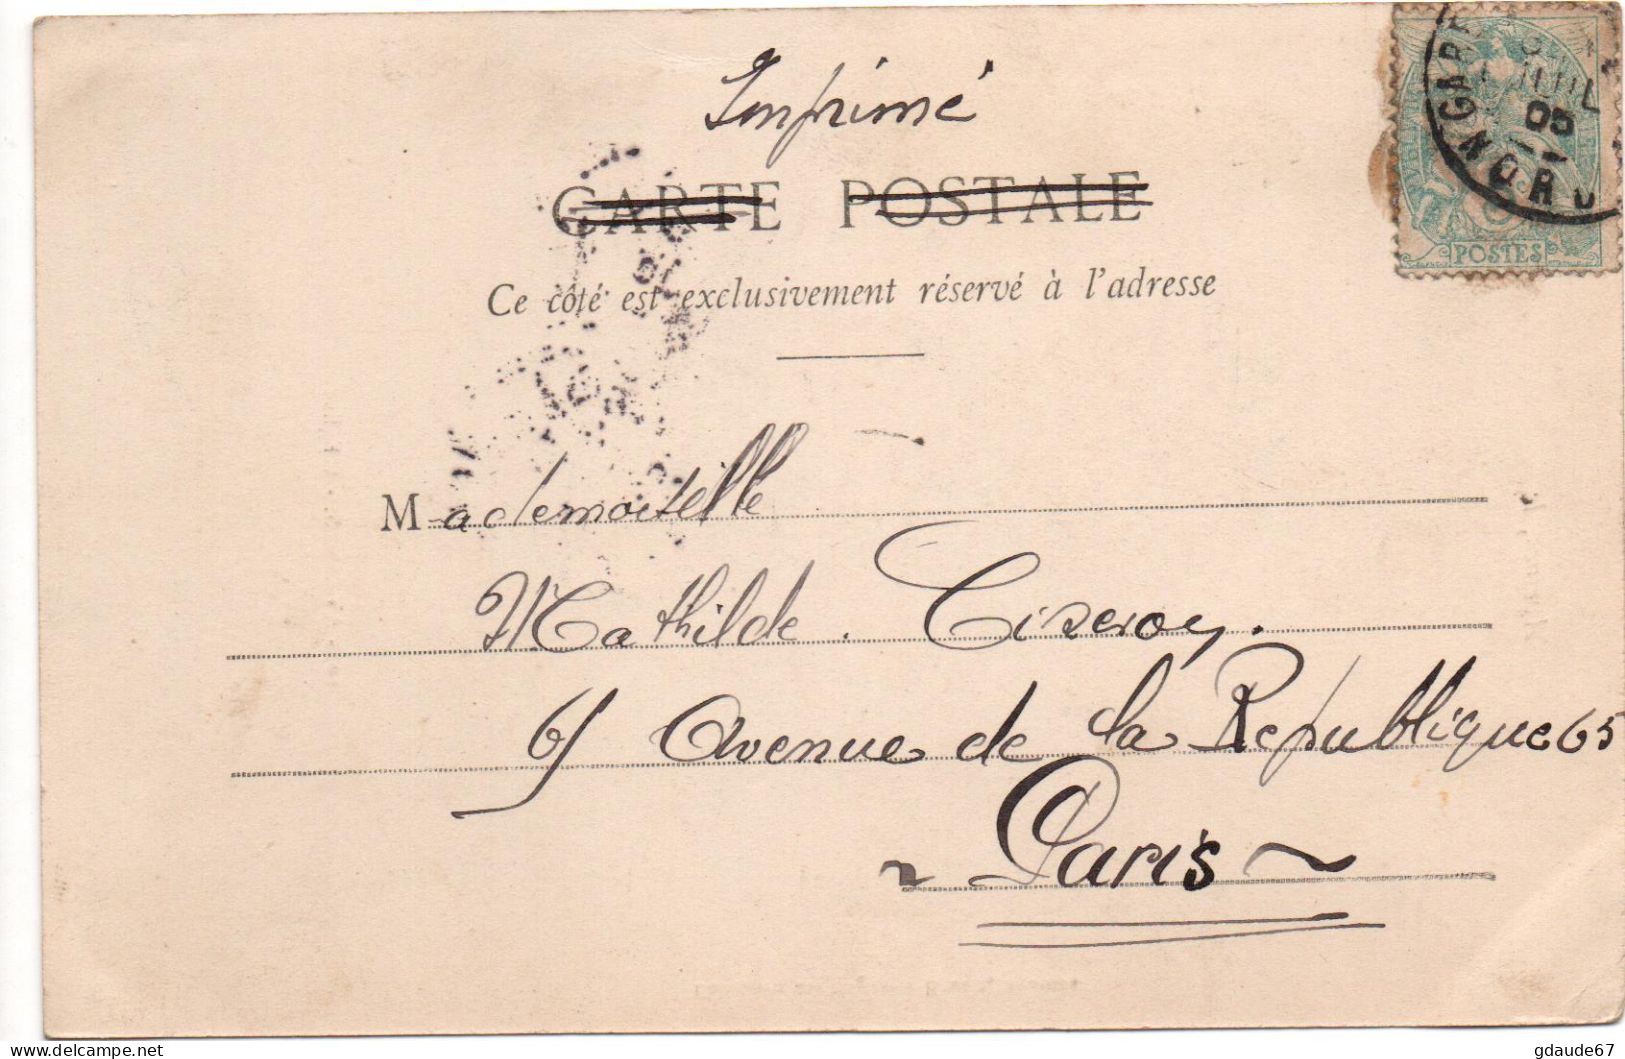 Imprimé
CARTE POSTALE
Ce côté est exclusivement réservé à l'adresse
GARE
NORD
JUIL
05
POSTES
Mademoiselle
Mathilde. Cizeroy.
65 Avenue de la Republique 65
Paris
delcampe.net
gdaude67